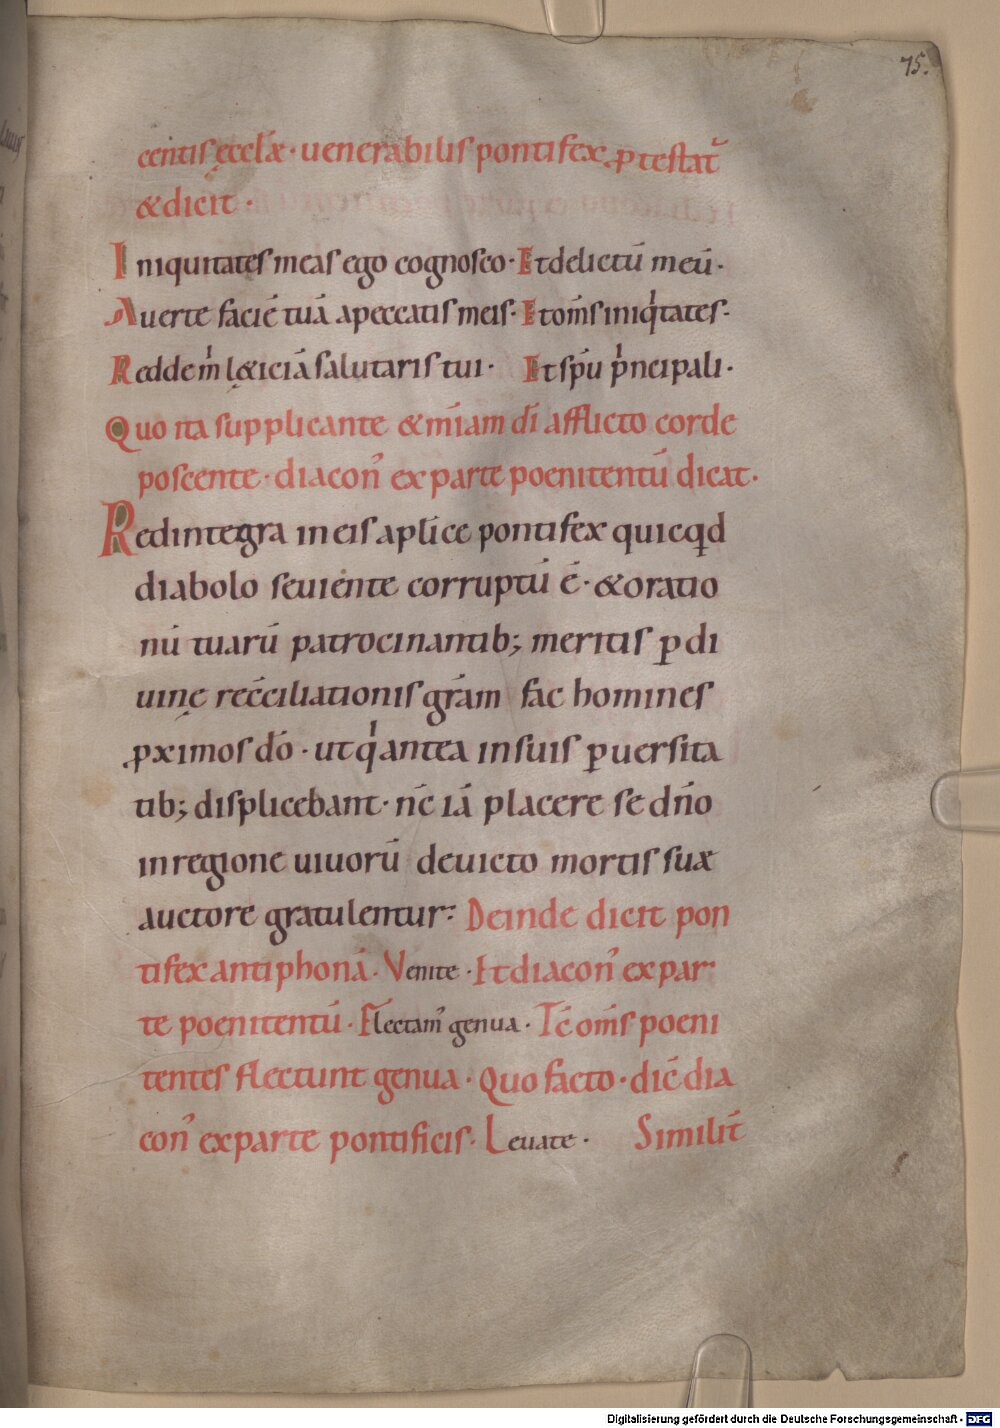 75.
centis ęccl̄æ · uenerabilis pontifex ꝓtestat᷑
& dicit ·
Iniquitates meas ego cognosco · Et delictū meū ·
Auerte faciē tuā a peccatis meis · Et om̄s iniqͥtates ·
Redde m̍ lę&iciā salutaris tui · Et sp̄u pͥncipali ·
Quo ita supplicante & mīam dī afflicto corde
poscente · diacon᾽ ex parte poenitentū dicat ·
Redintegra in eis apl̄ice pontifex quicqd̍
diabolo seuiente corruptū ē · & oratio
nū tuarū patrocinantib; meritis ꝑ di
uinę rec̄ciliationis gr̄am fac homines
ꝓximos dō · ut qͥ antea in suis ꝑuersita
tib; displicebant · nc̄ iā placere se dn̄o
in regione uiuorū deuicto mortis suæ
auctore gratulentur · Deinde dicit pon
tifex antiphonā · Venite · Et diacon᾽ ex par
te poenitentū · Flectam᾽ genua · Tc̄ om̄s poeni
tentes flectunt genua · Quo facto · dic̄ dia
con᾽ ex parte pontificis · Leuate · Similit̄
Digitalisierung gefördert durch die Deutsche Forschungsgemeinschaft - DFG